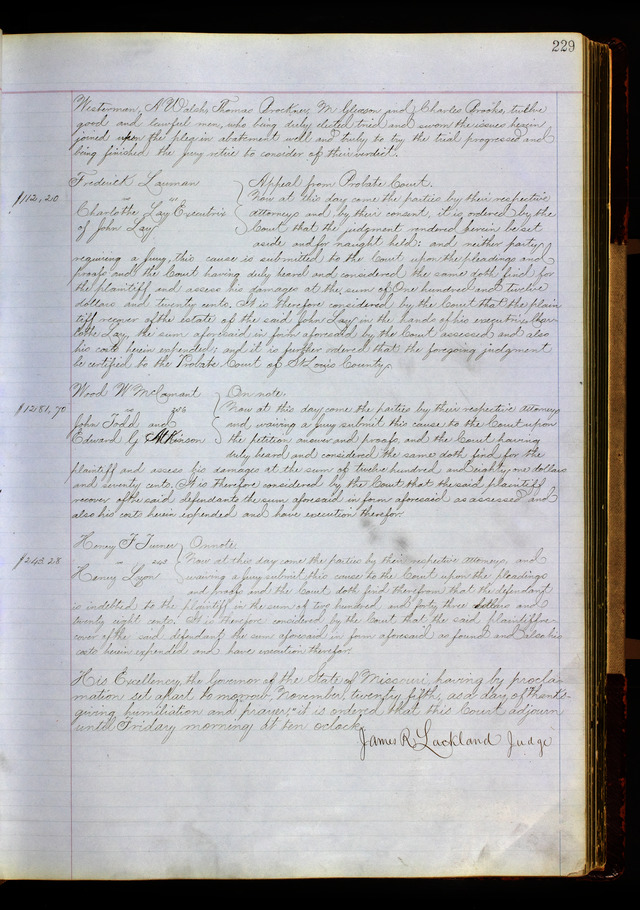 229
Westerman, N Walsh, Thomas Brockner, M Gleason and Charles Brooks, twelve
good and lawful men, who being duly elected tried and sworn the issues herein
joined upon the plea in abatement well and truly to try the trial progressed and
being finished the jury retire to consider of their verdict.
Frederick Lauman } Appeal from Probate Court.
$112,20 vs } Now at this day come the parties by their respective
Charlotte Lay Executrix } attorneys and by their consent, it is ordered by the
of John Lay } Court that the judgment rendered herein be set
aside and for naught held: and neither party
requiring a jury, this cause is submitted to the Court upon the pleadings and
proofs and the Court having duly heard and considered the same doth find for
the plaintiff and assess his damages at the sum of One hundred and twelve
dollars and twenty cents. It is therefore considered by the Court that the plain
tiff recover of the estate of the said John Lay, in the hands of his executrix Char
lotte Lay, the sum aforesaid in form aforesaid by the Court assessed and also
his costs herein expended; and it is further ordered that the foregoing judgment
be certified to the Probate Court of St Louis County.
Wood W McCamant } On note
$1281,70 vs } Now at this day come the parties by their respective attorneys
John Todd and } and waiving a jury submit this cause to the Court upon
Edward G Atkinson } the petition answer and proofs, and the Court having
duly heard and considered the same doth find for the
plaintiff and assess his damages at the sum of twelve hundred and eighty one dollars
and seventy cents. It is therefore considered by the Court that the said plaintiff
recover of the said defendants the sum aforesaid in form aforesaid as assessed and
also his costs herein expended and have execution therefor.
Henry F Turner } On note
$243.28 vs } Now at this day come the parties by their respective attorneys, and
Henry Lyon } waiving a jury submit this cause to the Court upon the pleadings
and proofs and the Court doth find therefrom that the defendant
is indebted to the plaintiff in the sum of two hundred and forty three dollars and
twenty eight cents. It is therefore considered by the Court that the said plaintiff re-
cover of the said defendant the sum aforesaid in form aforesaid as found and also his
costs herein expended and have execution therefor.
His Excellency, the Governor of the State of Missouri, having by procla-
mation set apart to morrow, November twenty fifth, as a day of thanks-
giving humiliation and prayer, it is ordered that this Court adjourn
until Friday morning at ten oclock
James R Lackland Judge